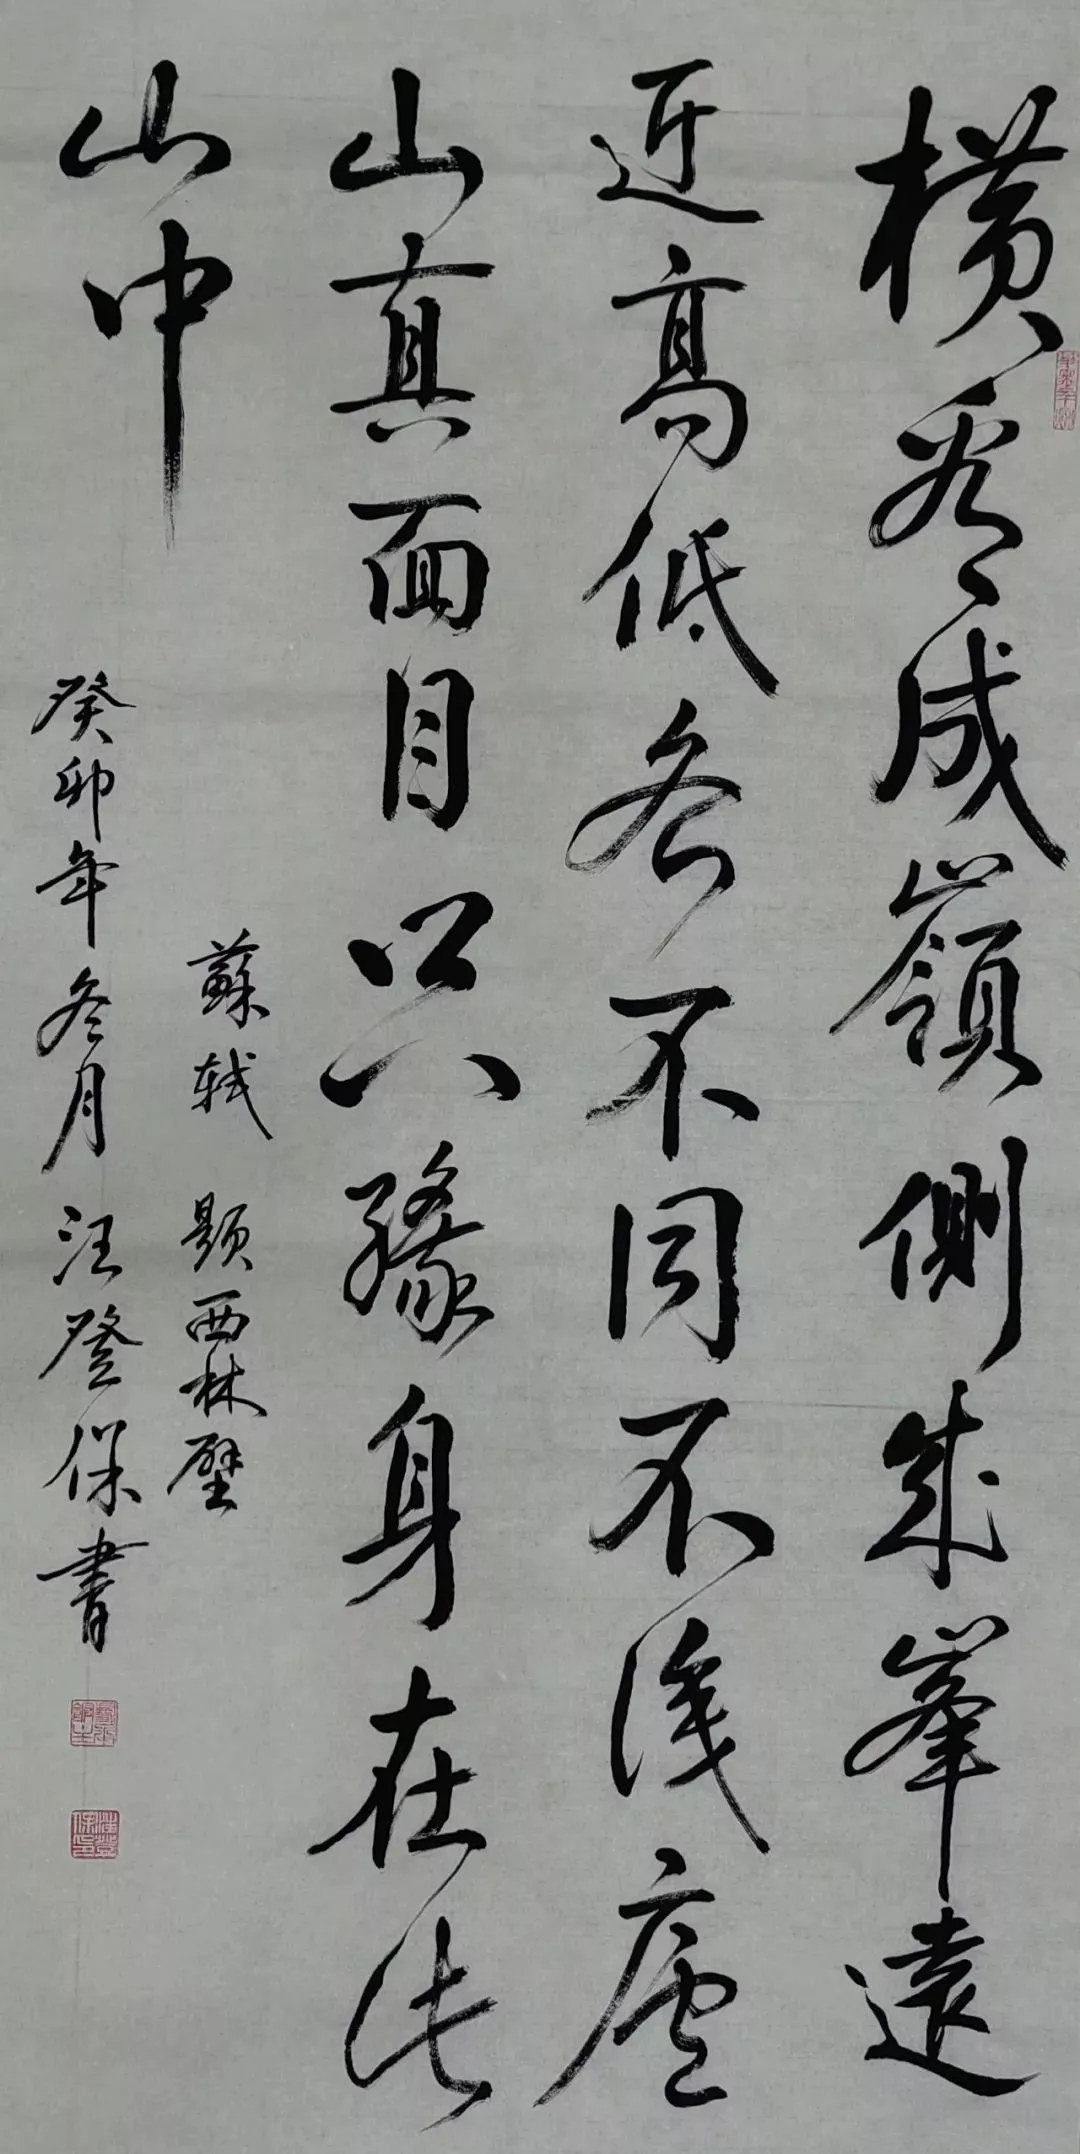 橫看成嶺側成峯遠
近高低各不同不識廬
山真面目只緣身在此
山中
蘇軾 題西林壁
癸卯年冬月汪登保書